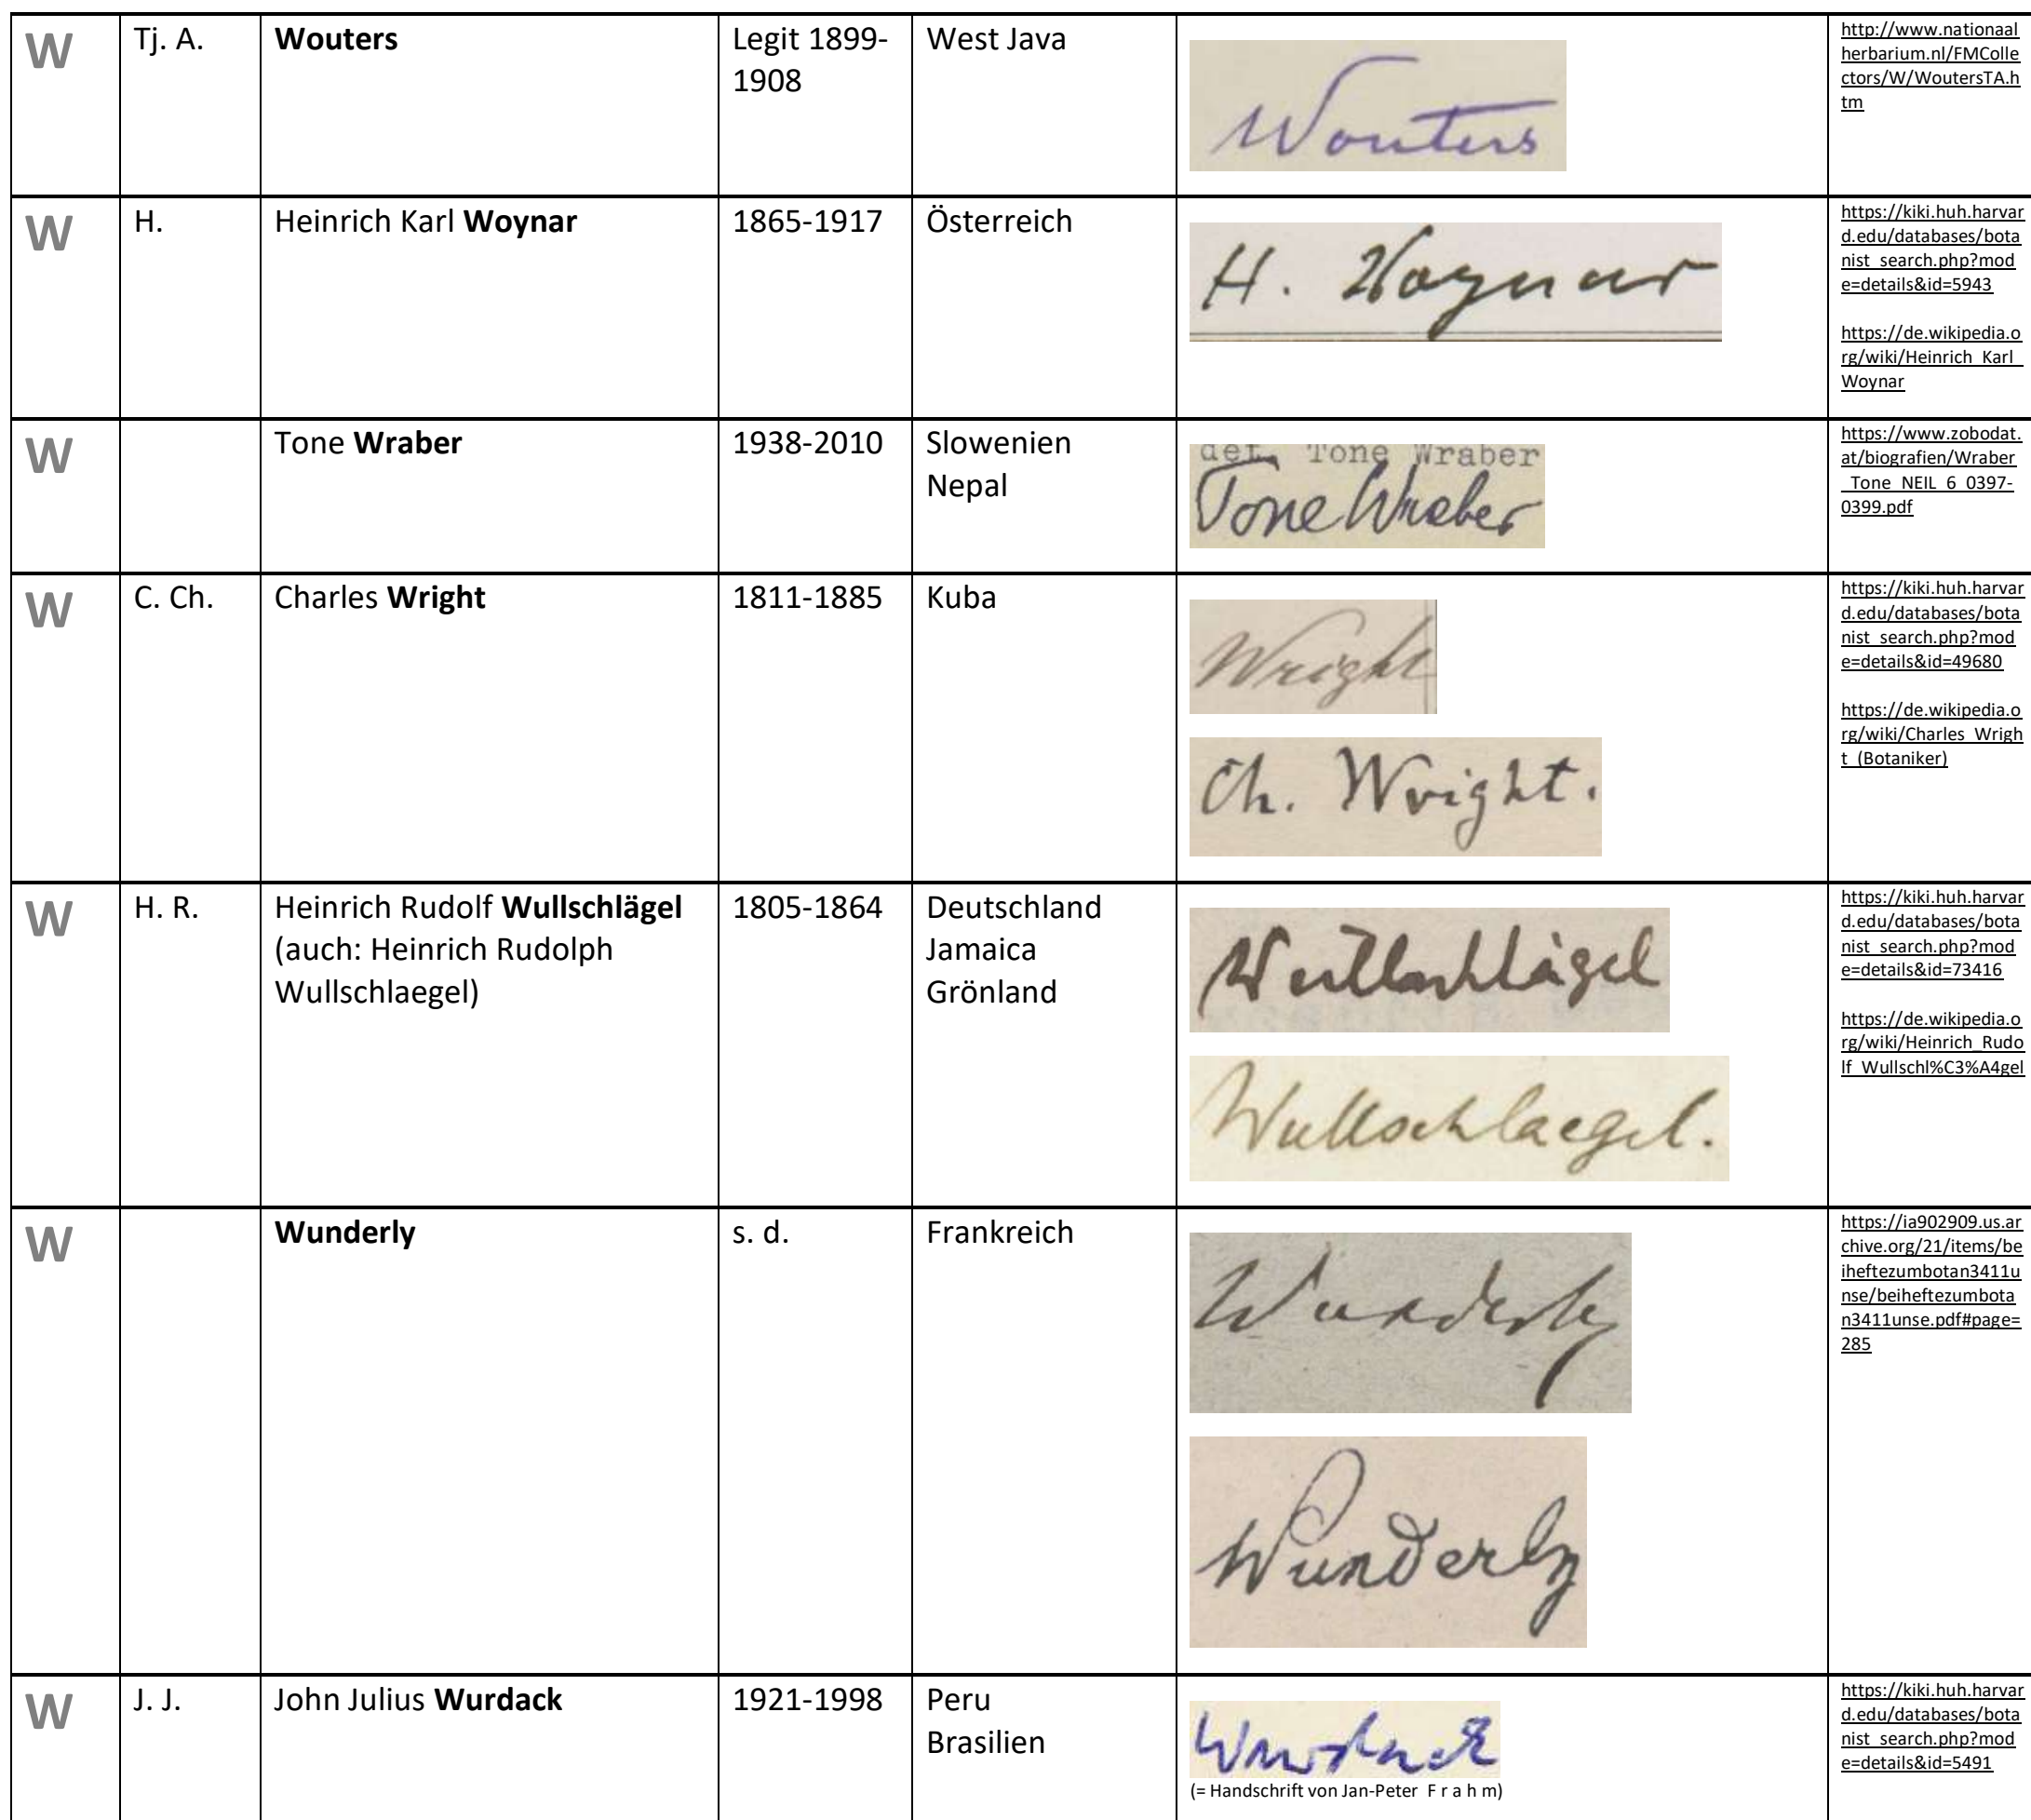 W
Tj. A.
Wouters
Legit 1899-
1908
West Java
Wouters
http://www.nationaal
herbarium.nl/FMColle
ctors/W/WoutersTA.h
tm
W
H.
Heinrich Karl Woynar
1865-1917
Österreich
H. Woynar
https://kiki.huh.harvar
d.edu/databases/bota
nist_search.php?mod
e=details&id=5943
https://de.wikipedia.o
rg/wiki/Heinrich_Karl_
Woynar
W
Tone Wraber
1938-2010
Slowenien
Nepal
det. Tone Wraber
Tone Wraber
https://www.zobodat.
at/biografien/Wraber
_Tone_NEIL_6_0397-
0399.pdf
W
C. Ch.
Charles Wright
1811-1885
Kuba
Wright
Ch. Wright.
https://kiki.huh.harvar
d.edu/databases/bota
nist_search.php?mod
e=details&id=49680
https://de.wikipedia.o
rg/wiki/Charles_Wrigh
t_(Botaniker)
W
H. R.
Heinrich Rudolf Wullschlägel
(auch: Heinrich Rudolph
Wullschlaegel)
1805-1864
Deutschland
Jamaica
Grönland
Wullschlägel
Wullschlaegel.
https://kiki.huh.harvar
d.edu/databases/bota
nist_search.php?mod
e=details&id=73416
https://de.wikipedia.o
rg/wiki/Heinrich_Rudo
lf_Wullschl%C3%A4gel
W
Wunderly
s. d.
Frankreich
Wunderly
Wunderly
https://ia902909.us.ar
chive.org/21/items/be
iheftezumbotan3411u
nse/beiheftezumbota
n3411unse.pdf#page=
285
W
J. J.
John Julius Wurdack
1921-1998
Peru
Brasilien
Wurdack
(= Handschrift von Jan-Peter F r a h m)
https://kiki.huh.harvar
d.edu/databases/bota
nist_search.php?mod
e=details&id=5491